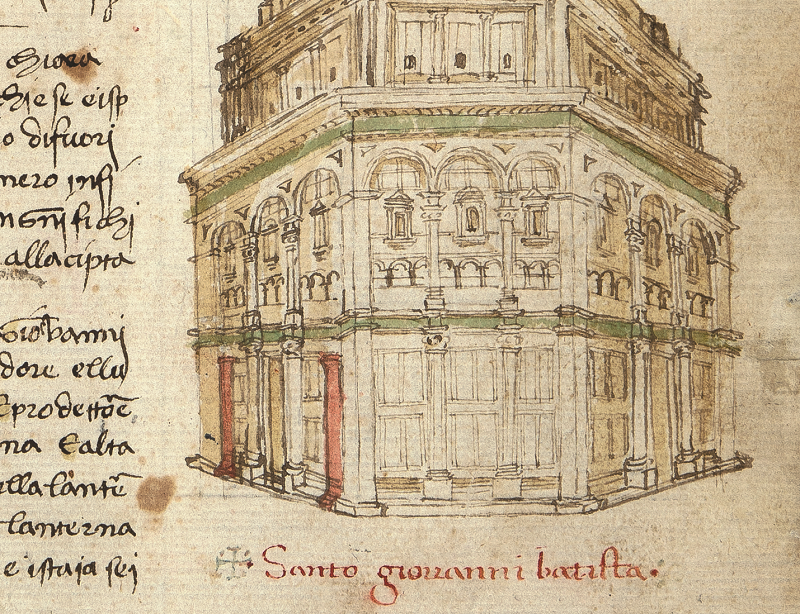 chiesa
chiese eisp
o difuori
nero insj
ngnifichj
allacipta
Giovannj
dore ellu
Eprodettoe
na Ealta
ellalante
lanterna
e istaia sej
✠ Santo giovanni batista.